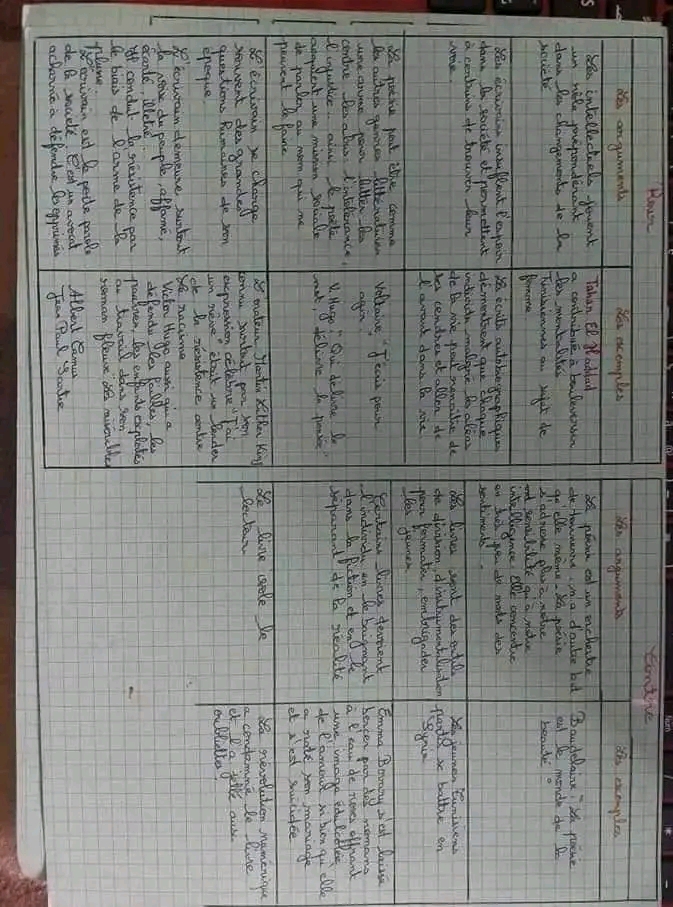 Pour
Les arguments
Les exemples
Les intellectuels jouent
un rôle prépondérant
dans les changements de la
société
Tahar El Haddad
a contribué à bouleverser
les mentalités
Tunisiennes au sujet de
femme
Les écrivains insufflent l'espoir
dans la société et permettent
à certains de trouver leur
voie.
Les écrits autobiographiques
démontrent que chaque
individu malgré les aléas
de la vie peut renaître de
ses cendres et aller de
l'avant dans la vie
La poésie peut être comme
les autres genres littéraires
une arme pour lutter
contre les abus, l'intolérance,
l'injustice... ainsi le poète
acquiert une mission sociale
de parler au nom qui ne
peuvent le faire
Voltaire "J'écris pour
agir"
V. Hugo "Qui délivre le
mot, délivre la pensée"
L'écrivain se charge
souvent des grandes
questions humaines de son
époque
L'écrivain demeure surtout
la voix du peuple, affamé,
écarté, illettré
Il conduit la résistance par
le biais de l'arme de la
plume
L'écrivain est le porte parole
de la société. C'est un avocat
acharné à défendre les opprimés
L'orateur Martin Luther King
connu surtout par son
expression célèbre "J'ai
un rêve" était un leader
de la résistance contre
le racisme
Victor Hugo aussi qui a
défendu les faibles, les
pauvres, les enfants exploités
au travail dans son
roman fleuve Les misérables
Albert Camus
Jean Paul Sartre
Contre
Les arguments
Les exemples
La poésie est un orchestre
de tonnerre, n'a d'autre but
qu'elle même. La poésie
s'adresse plus à notre
sensibilité qu'à notre
intelligence, elle concentre
en très peu de mots des
sentiments.
Baudelaire, "La poésie
est le monde de la
beauté"
Les livres sont des outils
de division, d'instrumentalisation
pour formater, embrigader
les jeunes
Les jeunes tunisiens
partis se battre en
Syrie
Certains livres dévorent
l'individu en le baignant
dans la fiction et en le
séparant de la réalité
Emma Bovary s'est laissé
bercer par des romans
à l'eau de roses offrant
une image édulcorée
de l'amour si bien qu'elle
a raté son mariage
et s'est suicidée
Le livre isole le
lecteur
La révolution numérique
a condamné le livre
et l'a jeté aux
oubliettes